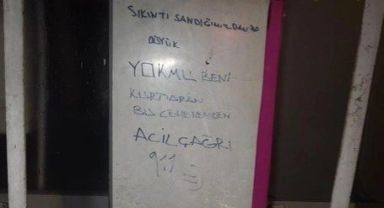 SIKINTI SANDIĞINIZDAN DA
BÜYÜK
YOKMU BENİ
KURTARAN
BU CEHENEMDEN
ACİL ÇAĞRI
911